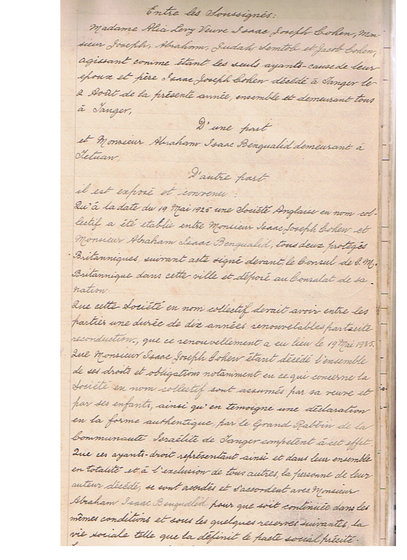 Entre les Soussignés:
Madame Alia Levy Veuve Isaac Joseph Cohen, Mon-
sieur Joseph, Abraham, Judah Semtob et Jacob Cohen,
agissant comme étant les seuls ayants-cause de leur
époux et père Isaac Joseph Cohen décédé à Tanger le
2 Août de la présente année, ensemble et demeurant tous
à Tanger,
D'une part
et Monsieur Abraham Isaac Benqualid demeurant à
Tetuan
D'autre part
il est exposé et convenu:
Qu'à la date du 19 Mai 1925 une Société Anglaise en nom col-
lectif a été établie entre Monsieur Isaac Joseph Cohen et
Monsieur Abraham Isaac Benqualid, tous deux protégés
Britanniques suivant acte signé devant le Consul de S.M.
Britannique dans cette ville et déposé au Consulat de sa
nation.
Que cette Société en nom collectif devait avoir entre les
parties une durée de dix années renouvelables par tacite
reconduction, que ce renouvellement a eu lieu le 19 Mai 1935.
Que Monsieur Isaac Joseph Cohen étant décédé l'ensemble
de ses droits et obligations notamment en ce qui concerne la
Société en nom collectif sont assumés par sa veuve et
par ses enfants, ainsi qu'en témoigne une déclaration
en la forme authentique par le Grand Rabbin de la
Communauté Israélite de Tanger compétent à cet effet.
Que ces ayants-droit représentant ainsi et dans leur ensemble
en totalité et à l'exclusion de tous autres, la personne de leur
auteur décédé, se sont accordés et s'accordent avec Monsieur
Abraham Isaac Benqualid pour que soit continuée dans les
mêmes conditions et sous les quelques reserves suivantes, la
vie sociale telle que la définit le pacte social précité